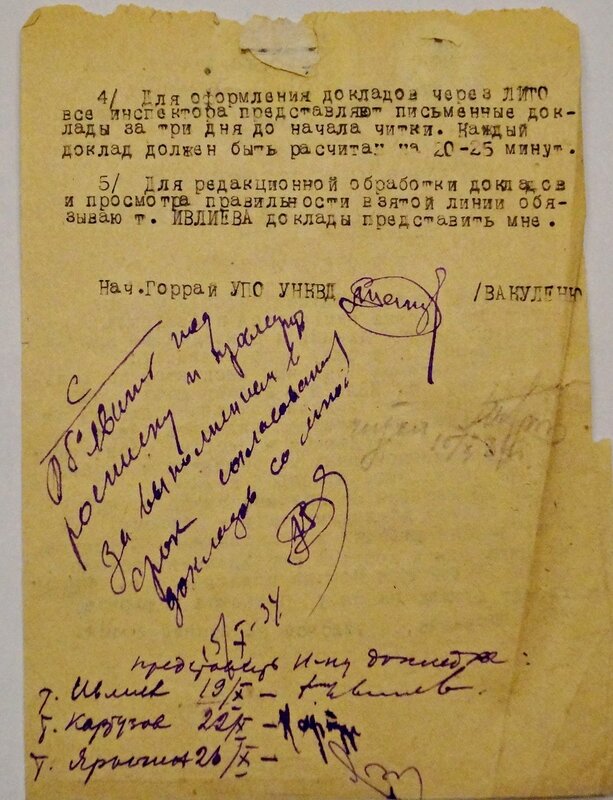 4/ Для оформления докладов через ЛИТО
все инспектора представляют письменные док-
лады за три дня до начала читки. Каждый
доклад должен быть расчитан на 20-25 минут.
5/ Для редакционной обработки докладов
и просмотра правильности взятой линии обя-
зываю т. ИВЛИЕВА доклады представить мне.
Нач.Горрай УПО УНКВД /ВАКУЛЕНКО
Объявить под
росписку и
за выполнением в
срок согласования
докладов со мной.
15/X-34
представить докладов:
т. Ивлиев 19/X - Ивлиев.
т. Карпузов 22/X -
т. 26/X -